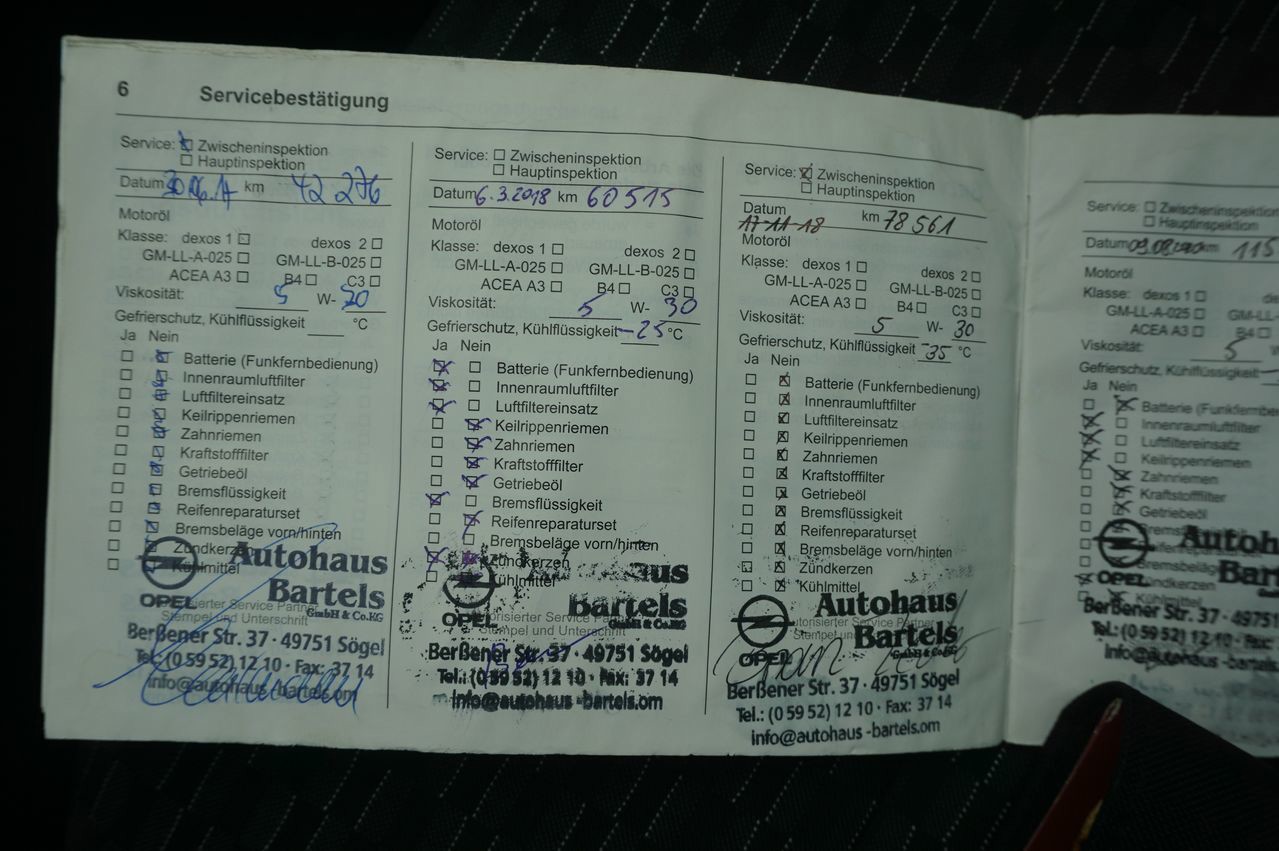 6 Servicebestätigung
Service: Zwischeninspektion
Hauptinspektion
Datum km 42 276
Motoröl
Klasse: dexos 1 dexos 2
GM-LL-A-025 GM-LL-B-025
ACEA A3 B4 C3
Viskosität: 5 W-
Gefrierschutz, Kühlflüssigkeit °C
Ja Nein
Batterie (Funkfernbedienung)
Innenraumluftfilter
Luftfiltereinsatz
Keilrippenriemen
Zahnriemen
Kraftstofffilter
Getriebeöl
Bremsflüssigkeit
Reifenreparaturset
Bremsbeläge vorn/hinten
Zündkerzen
Kühlmittel
Autohaus
Bartels
OPEL GmbH & Co.KG
Service Partner
Stempel und Unterschrift
Berßener Str. 37 · 49751 Sögel
Tel.: (0 59 52) 12 10 · Fax: 37 14
info@autohaus-bartels.om
Service: Zwischeninspektion
Hauptinspektion
Datum 6.3.2018 km 60515
Motoröl
Klasse: dexos 1 dexos 2
GM-LL-A-025 GM-LL-B-025
ACEA A3 B4 C3
Viskosität: 5 W- 30
Gefrierschutz, Kühlflüssigkeit -25 °C
Ja Nein
Batterie (Funkfernbedienung)
Innenraumluftfilter
Luftfiltereinsatz
Keilrippenriemen
Zahnriemen
Kraftstofffilter
Getriebeöl
Bremsflüssigkeit
Reifenreparaturset
Bremsbeläge vorn/hinten
Zündkerzen
Kühlmittel
Bartels
OPEL GmbH & Co.KG
Stempel und Unterschrift
Berßener Str. 37 · 49751 Sögel
Tel.: (0 59 52) 12 10 · Fax: 37 14
info@autohaus-bartels.om
Service: Zwischeninspektion
Hauptinspektion
Datum 17-11-18 km 78561
Motoröl
Klasse: dexos 1 dexos 2
GM-LL-A-025 GM-LL-B-025
ACEA A3 B4 C3
Viskosität: 5 W- 30
Gefrierschutz, Kühlflüssigkeit -35 °C
Ja Nein
Batterie (Funkfernbedienung)
Innenraumluftfilter
Luftfiltereinsatz
Keilrippenriemen
Zahnriemen
Kraftstofffilter
Getriebeöl
Bremsflüssigkeit
Reifenreparaturset
Bremsbeläge vorn/hinten
Zündkerzen
Kühlmittel
Autohaus
Bartels
OPEL GmbH & Co.KG
Berßener Str. 37 · 49751 Sögel
Tel.: (0 59 52) 12 10 · Fax: 37 14
info@autohaus-bartels.om
Service: Zwischeninspektion
Hauptinspektion
Datum km 115
Motoröl
Klasse: dexos 1
GM-LL-A-025 GM-LL-
ACEA A3 B4
Viskosität: 5
Gefrierschutz, Kühlflüssigkeit
Ja Nein
Batterie (Funkfernbe
Innenraumluftfilter
Luftfiltereinsatz
Keilrippenriemen
Zahnriemen
Kraftstofffilter
Getriebeöl
Autoh
Bar
OPEL
Berßener Str. 37 · 49751
Tel.: (0 59 52) 12 10
info@autohaus